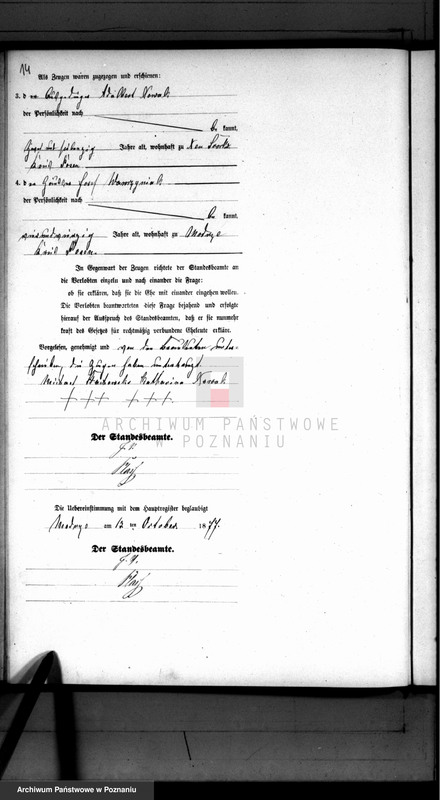 14
Als Zeugen waren zugezogen und erschienen:
3. der Adalbert Nowak
der Persönlichkeit nach
be kannt,
Jahre alt, wohnhaft zu
Kreis Posen
4. der Josef Wawrzyniak
der Persönlichkeit nach
be kannt,
Jahre alt, wohnhaft zu Modrze
Kreis Posen.
In Gegenwart der Zeugen richtete der Standesbeamte an
die Verlobten einzeln und nach einander die Frage:
ob sie erklären, daß sie die Ehe mit einander eingehen wollen.
Die Verlobten beantworteten diese Frage bejahend und erfolgte
hierauf der Ausspruch des Standesbeamten, daß er sie nunmehr
kraft des Gesetzes für rechtmäßig verbundene Eheleute erkläre.
Vorgelesen, genehmigt und von den unter-
schrieben, die Zeugen haben unterkreuzt.
Michael Katharina Nowak
+++ +++
ARCHIWUM PAŃSTWOWE
W POZNANIU
Der Standesbeamte.
Die Uebereinstimmung mit dem Hauptregister beglaubigt
Modrze am 13 ten October 1877.
Der Standesbeamte.
Archiwum Państwowe w Poznaniu